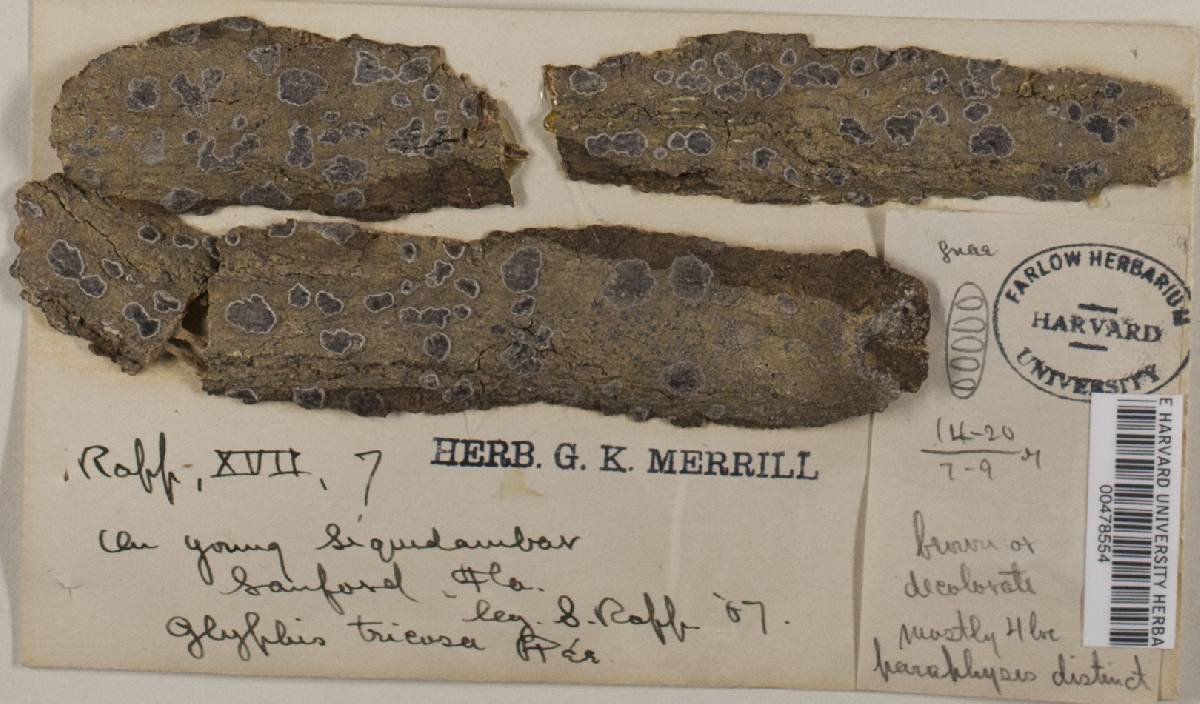 Rapp, XVII, 7
HERB. G. K. MERRILL
On young Liquidambar
Sanford, Fla.
leg. S. Rapp '07.
Glyphis tricosa
FARLOW HERBARIUM
HARVARD
UNIVERSITY
14-20
7-9
brown or
decolorate
mostly 4 loc
paraphyses distinct
E HARVARD UNIVERSITY HERBA
00478554